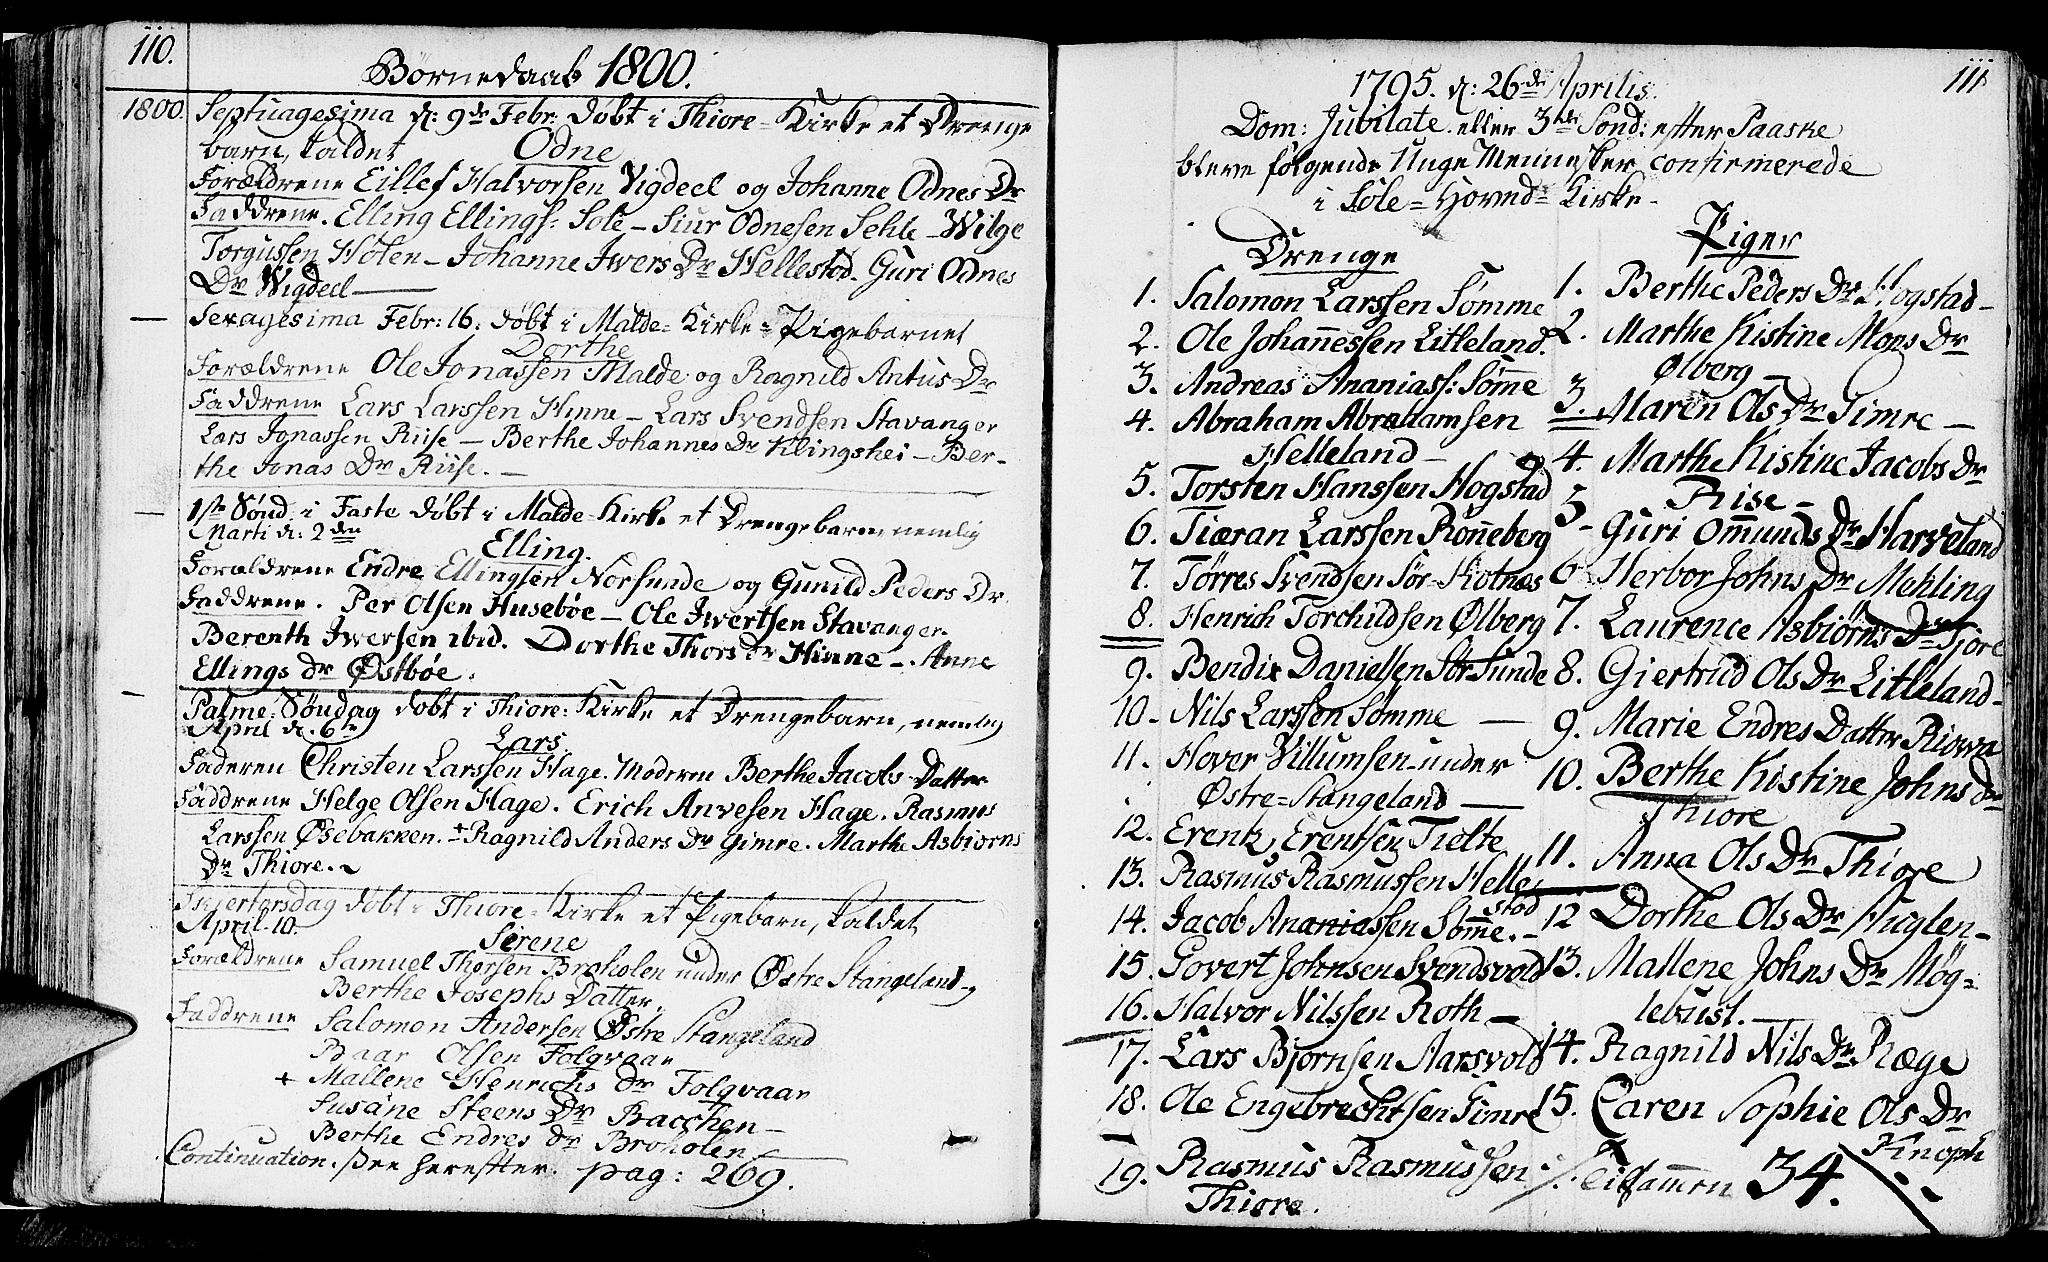 110.
Børnedaab 1800.
1800. Septuagesima d: 9de Febr: døbt i Thiore=Kirke et Drenge
barn, kaldet Odne
Forældrene Eillef Halvorsen Vigdeel og Johanne Odnes Dr
Faddrene. Elling Ellings: Sole – Siur Odnesen Sehle – Wilge
Torgussen Holen – Johanne Iwers Dr Hellestød. Guri Odnes
Dr Wigdeel
Sexagesima Febr: 16. døbt i Malde=Kirke=Pigebarnet
Dorthe
Forældrene Ole Jonassen Malde og Ragnild Antus Dr
Faddrene Lars Larssen Hinne – Lars Svendsen Stavanger
Lars Jonassen Riise – Berthe Johannes Dr Klingshei – Ber-
the Jonas Dr Riise. –
1ste Sønd: i Faste døbt i Malde=Kirke et Drengebarn, nemlig
Marti d: 2den
Elling.
Forældrene Endre Ellingsen Norsunde og Gunild Peders Dr
Faddrene. Per Olsen Husebøe – Ole Iwertsen Stavanger.
Berenth Iwersen ibid. Dorthe Thors Dr Hinne – Anne
Ellings Dr Østbøe.
Palme=Søndag døbt i Thiore=Kirke et Drengebarn, nemlig
April d. 6te
Lars
Faderen Christen Larssen Hage. Moderen Berthe Jacobs Datter
Faddrene Helge Olsen Hage. Erich Anvesen Hage. Rasmus
Larssen Øsebakken. + Ragnild Anders Dr Gimre. Marthe Asbiørns
Dr Thiore.
Skjertorsdag døbt i Thiore=Kirke et Pigebarn, kaldet
April 10.
Serene
Forældrene Samuel Thorsen Broholen under Østre Stangeland og
Berthe Josephs Datter.
Faddrene Salomon Andersen Østre Stangeland
Baar Olsen Folqvaar
+ Mallene Henrichs Dr Folqvaar
Susañe Steens Dr Bacchen –
Berthe Endres Dr Broholen
Continuation. see herefter. pag: 269.
111.
1795. d: 26de Aprilis.
Dom: Jubilate. eller 3die Sønd: efter Paaske
bleve følgende Unge Mennesker confirmerede
i Sole=Hoved=Kirke.
Drenge
1. Salomon Larssen Sømme
2. Ole Johañessen Litleland.
3. Andreas Ananiass: Søm̄e
4. Abraham Abrahamsen
Helleland –
5. Torsten Hanssen Hogstad
6. Tiæran Larssen Røñeberg
7. Tørres Svendsen Sør=Kolnæs
8. Henrich Torchildsen Ølberg
9. Bendix Danielsen Sør Sunde
10. Nils Larssen Sømme –
11. Hover Villumsen under
Østre=Stangeland
12. Erentz Erentsen Tielte
13. Rasmus Rasmussen Helle
stød
14. Jacob Ananiassen Søm̄e. –
15. Govert Johnsen Svendsvold
16. Halvor Nilssen Roth –
17. Lars Bjørnsen Aarsvold
18. Ole Engebrechtsen Gimre
19. Rasmus Rasmussen
Thiore.
Piger
1. Berthe Peders Dr Hogstad –
2. Marthe Kistine Mons Dr
Ølberg –
3. Maren Ols Dr Gimre –
4. Marthe Kistine Jacobs Dr
Rise –
5. Guri Om̄unds Dr Harveland
6. Herbor Johns Dr Mehling
7. Laurence Asbiørns Dr Tjore
8. Giertrud Ols Dr Litleland –
9. Marie Endres Datter Riowa
10. Berthe Kistine Johns Dr
Thiore
11. Anna Ols Dr Thiore
12 Dorthe Ols Dr Huglen –
13. Mallene Johns Dr Møg=
lebust.
14. Ragnild Nils Dr Ræge
15. Caren Sophie Ols Dr
Knoph
Tilsam̄en 34.